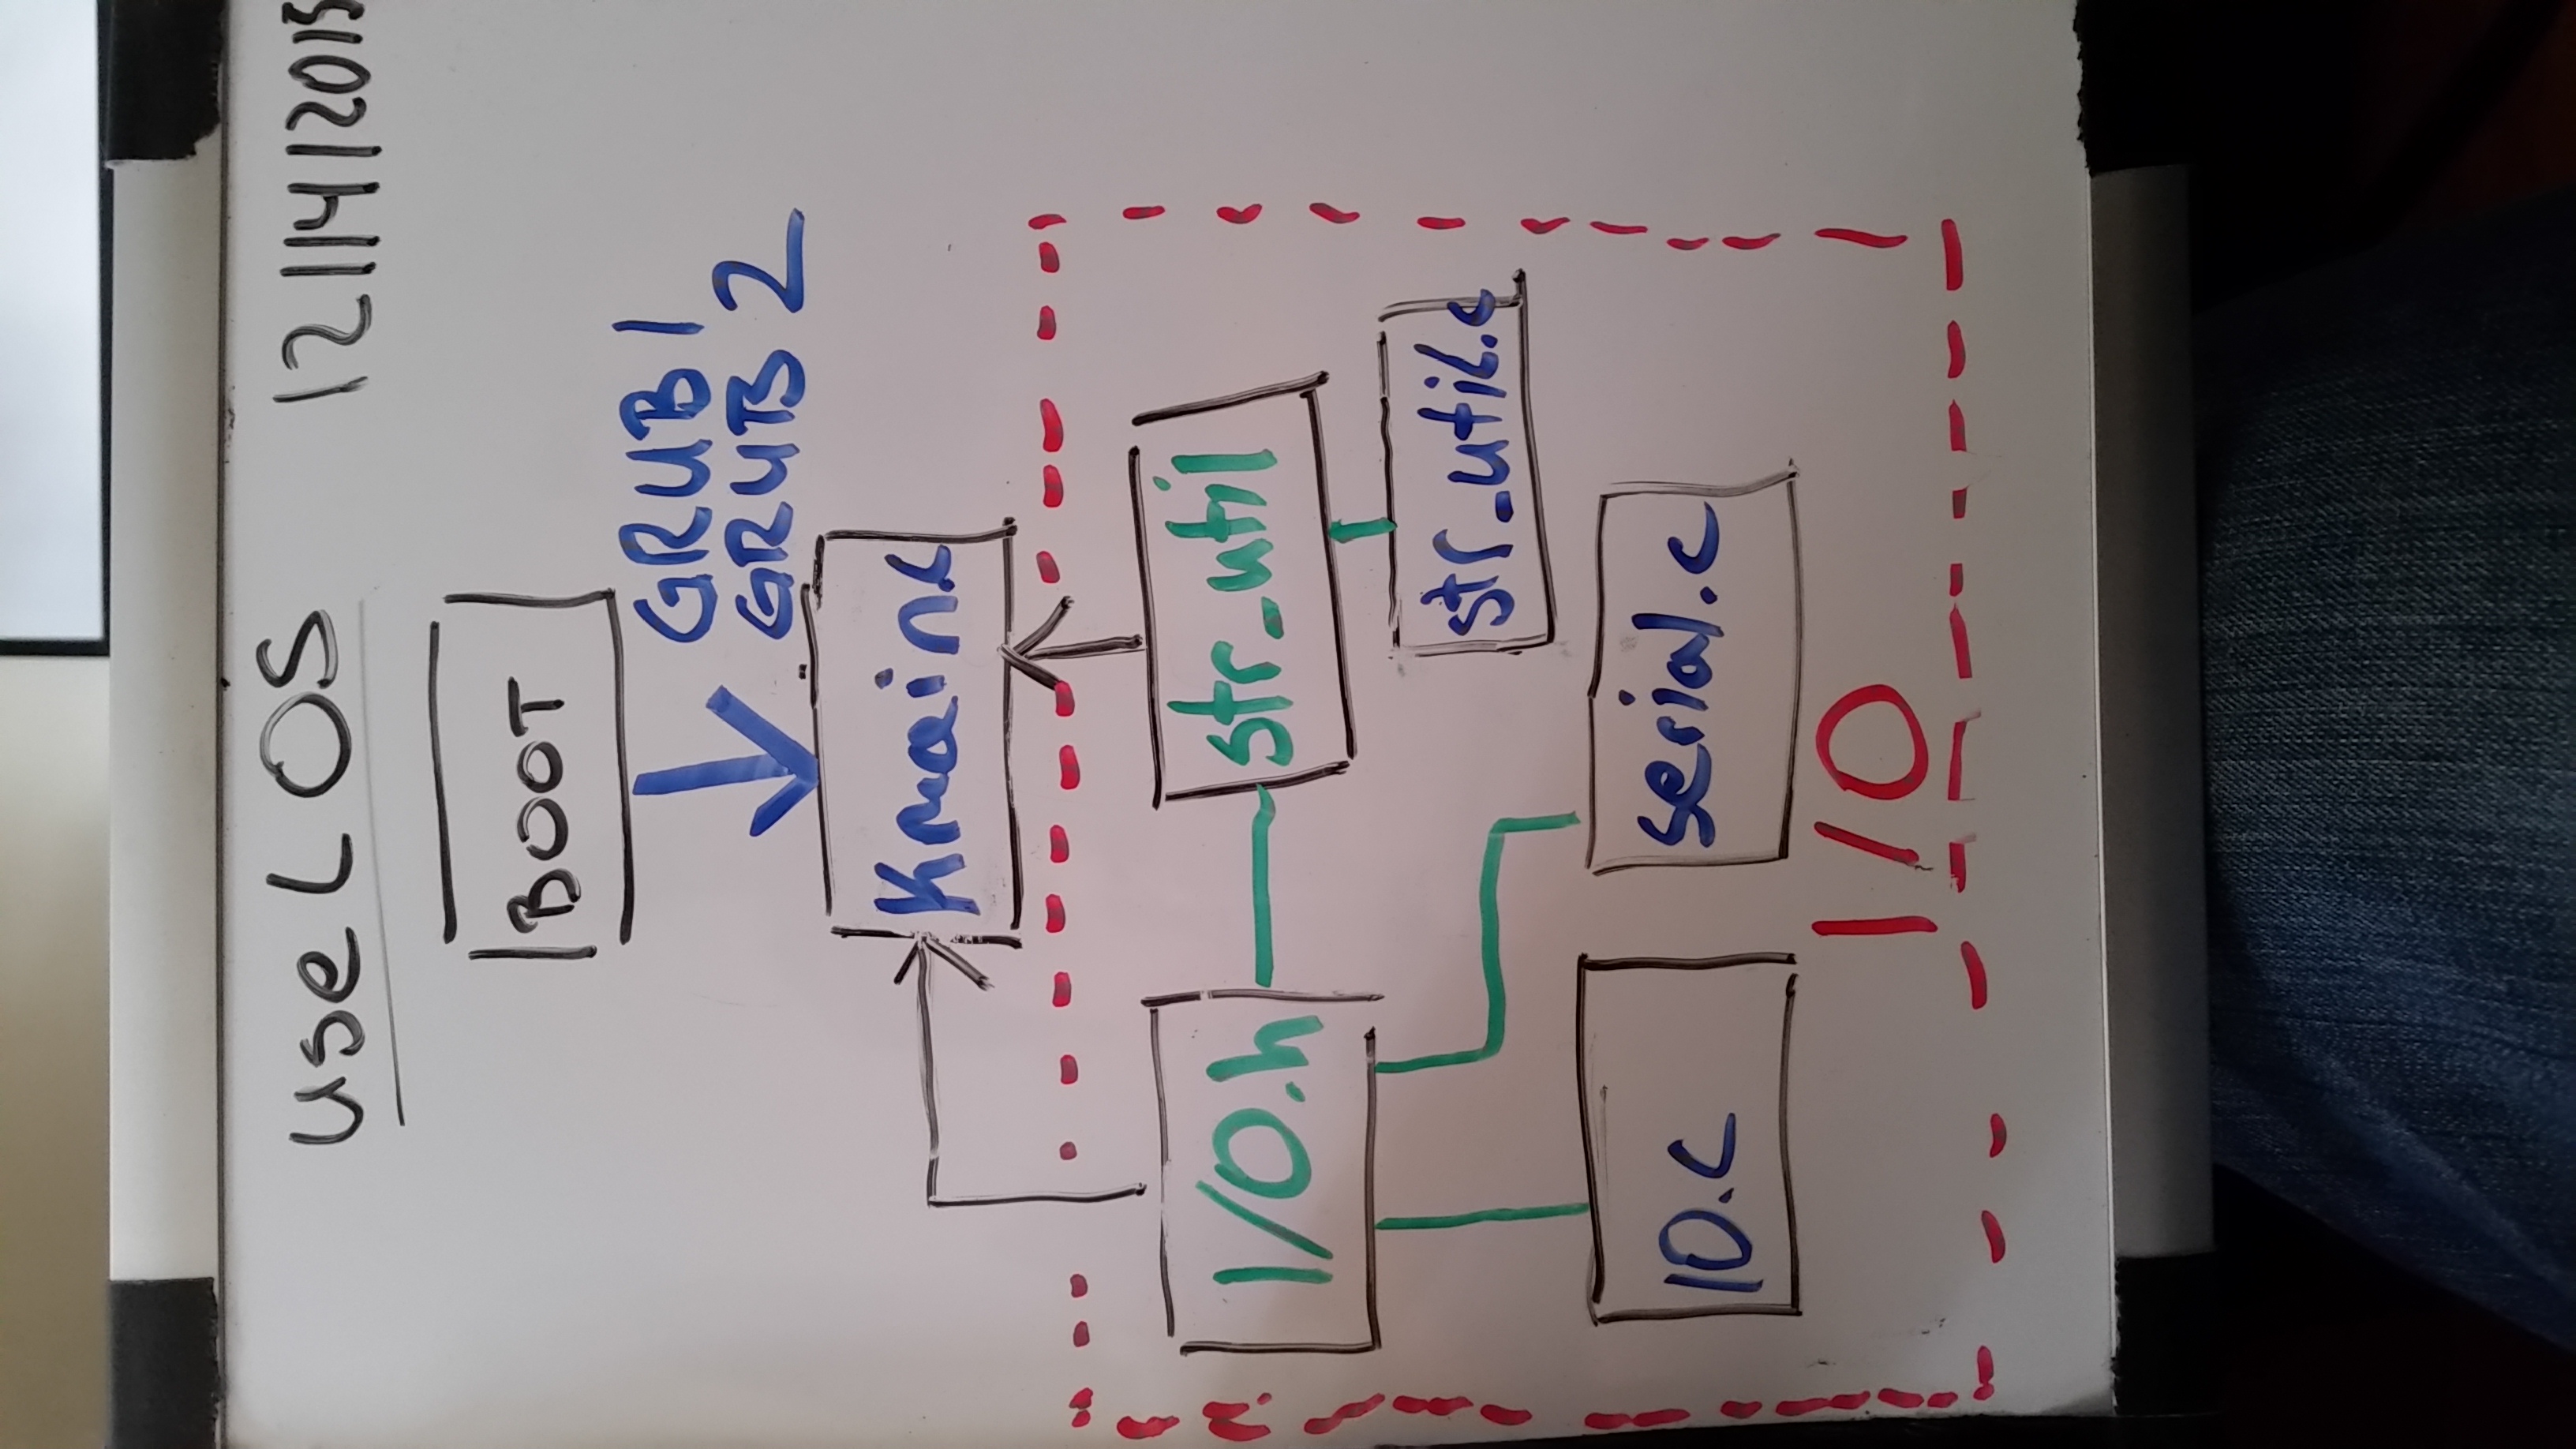 useLOS
12/14/2015
BOOT
GRUB1
GRUB2
Kmain.c
I/O.h
str_util
str_util.c
IO.c
serial.c
I/O